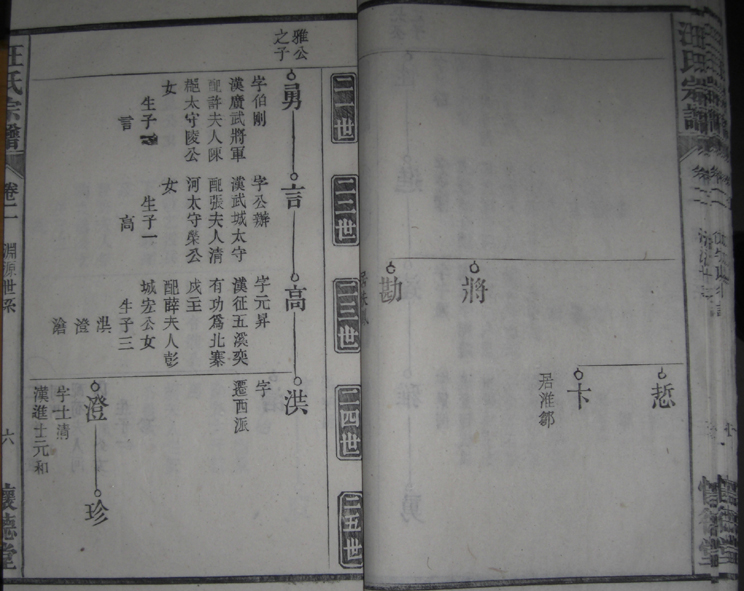 汪氏宗譜
悊
卞
居淮鄒
將
勘
二一世
二二世
二三世
二四世
二五世
雅公
之子
勇
字伯剛
漢廣武將軍
配許夫人陳
太守陵公
女
生子一
言
言
字公辯
漢武城太守
配張夫人清
河太守榮公
女
生子一
高
高
字元昇
漢征五溪奕
有功爲北寨
戍主
配薛夫人彭
城宏公女
生子三
澄
澹
洪
字
遷西派
澄
字士清
漢進士元和
珍
汪氏宗譜
卷二
淵源世系
六
懷德堂